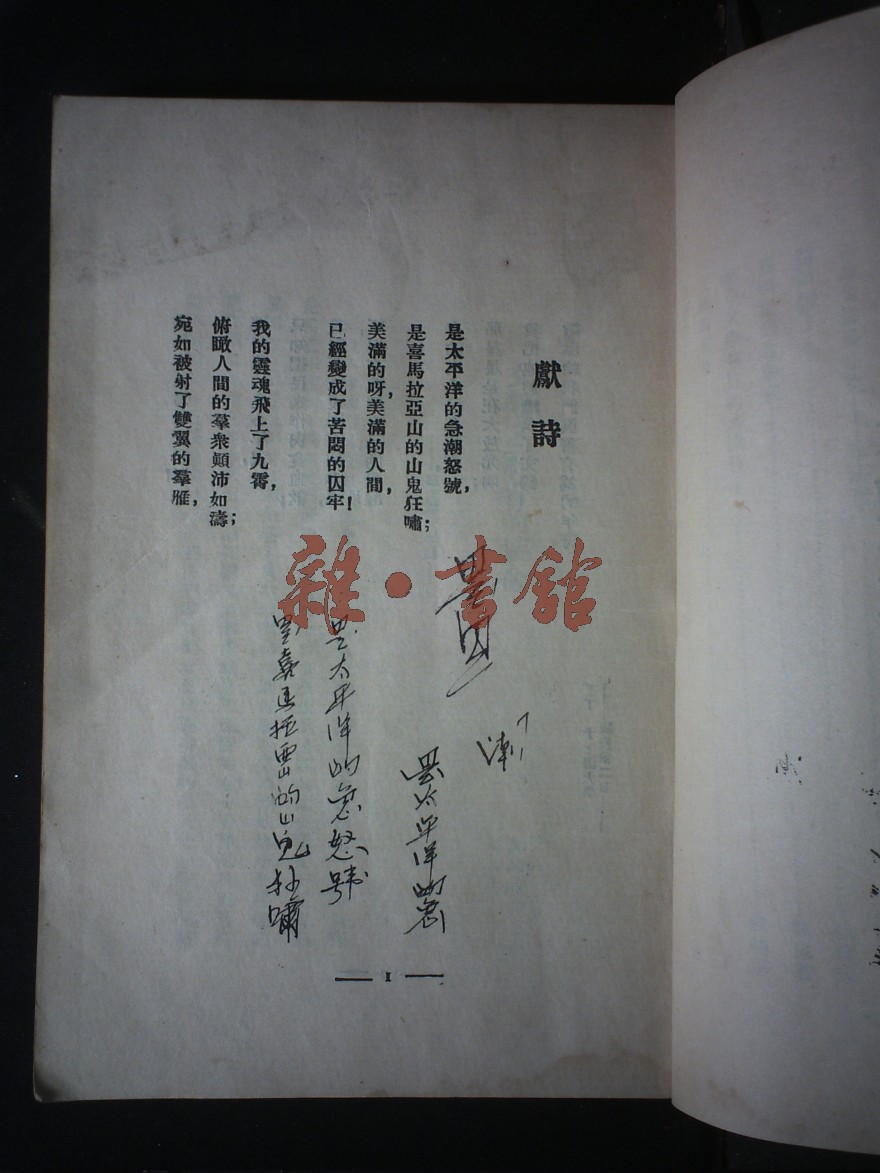 獻詩
是太平洋的急潮怒號，
是喜馬拉亞山的山鬼狂嘯；
美滿的呀，美滿的人間，
已經變成了苦悶的囚牢！
我的靈魂飛上了九霄，
俯瞰人間的羣衆顛沛如濤；
宛如被射了雙翼的羣雁，
雜·書館
潮
是太平洋的急
是太平洋的急怒號
是喜馬拉亞山的山鬼狂嘯
1